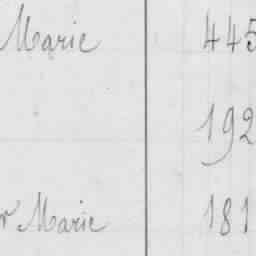 Marie 445
192
r Marie 181